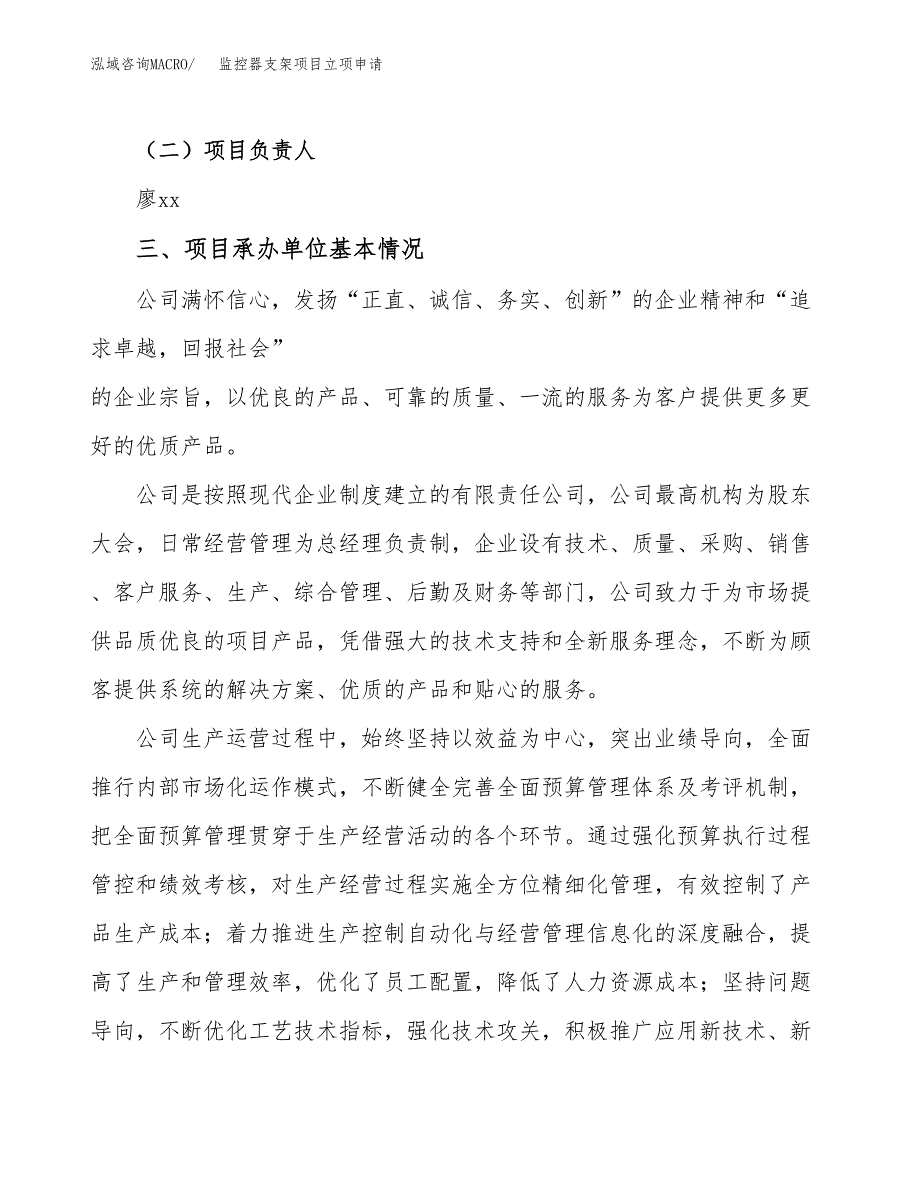 泓域咨询MACRO/ 监控器支架项目立项申请
（二）项目负责人
廖xx
三、项目承办单位基本情况
公司满怀信心，发扬“正直、诚信、务实、创新”的企业精神和“追
求卓越，回报社会”
的企业宗旨，以优良的产品、可靠的质量、一流的服务为客户提供更多更
好的优质产品。
公司是按照现代企业制度建立的有限责任公司，公司最高机构为股东
大会，日常经营管理为总经理负责制，企业设有技术、质量、采购、销售
、客户服务、生产、综合管理、后勤及财务等部门，公司致力于为市场提
供品质优良的项目产品，凭借强大的技术支持和全新服务理念，不断为顾
客提供系统的解决方案、优质的产品和贴心的服务。
公司生产运营过程中，始终坚持以效益为中心，突出业绩导向，全面
推行内部市场化运作模式，不断健全完善全面预算管理体系及考评机制，
把全面预算管理贯穿于生产经营活动的各个环节。通过强化预算执行过程
管控和绩效考核，对生产经营过程实施全方位精细化管理，有效控制了产
品生产成本；着力推进生产控制自动化与经营管理信息化的深度融合，提
高了生产和管理效率，优化了员工配置，降低了人力资源成本；坚持问题
导向，不断优化工艺技术指标，强化技术攻关，积极推广应用新技术、新